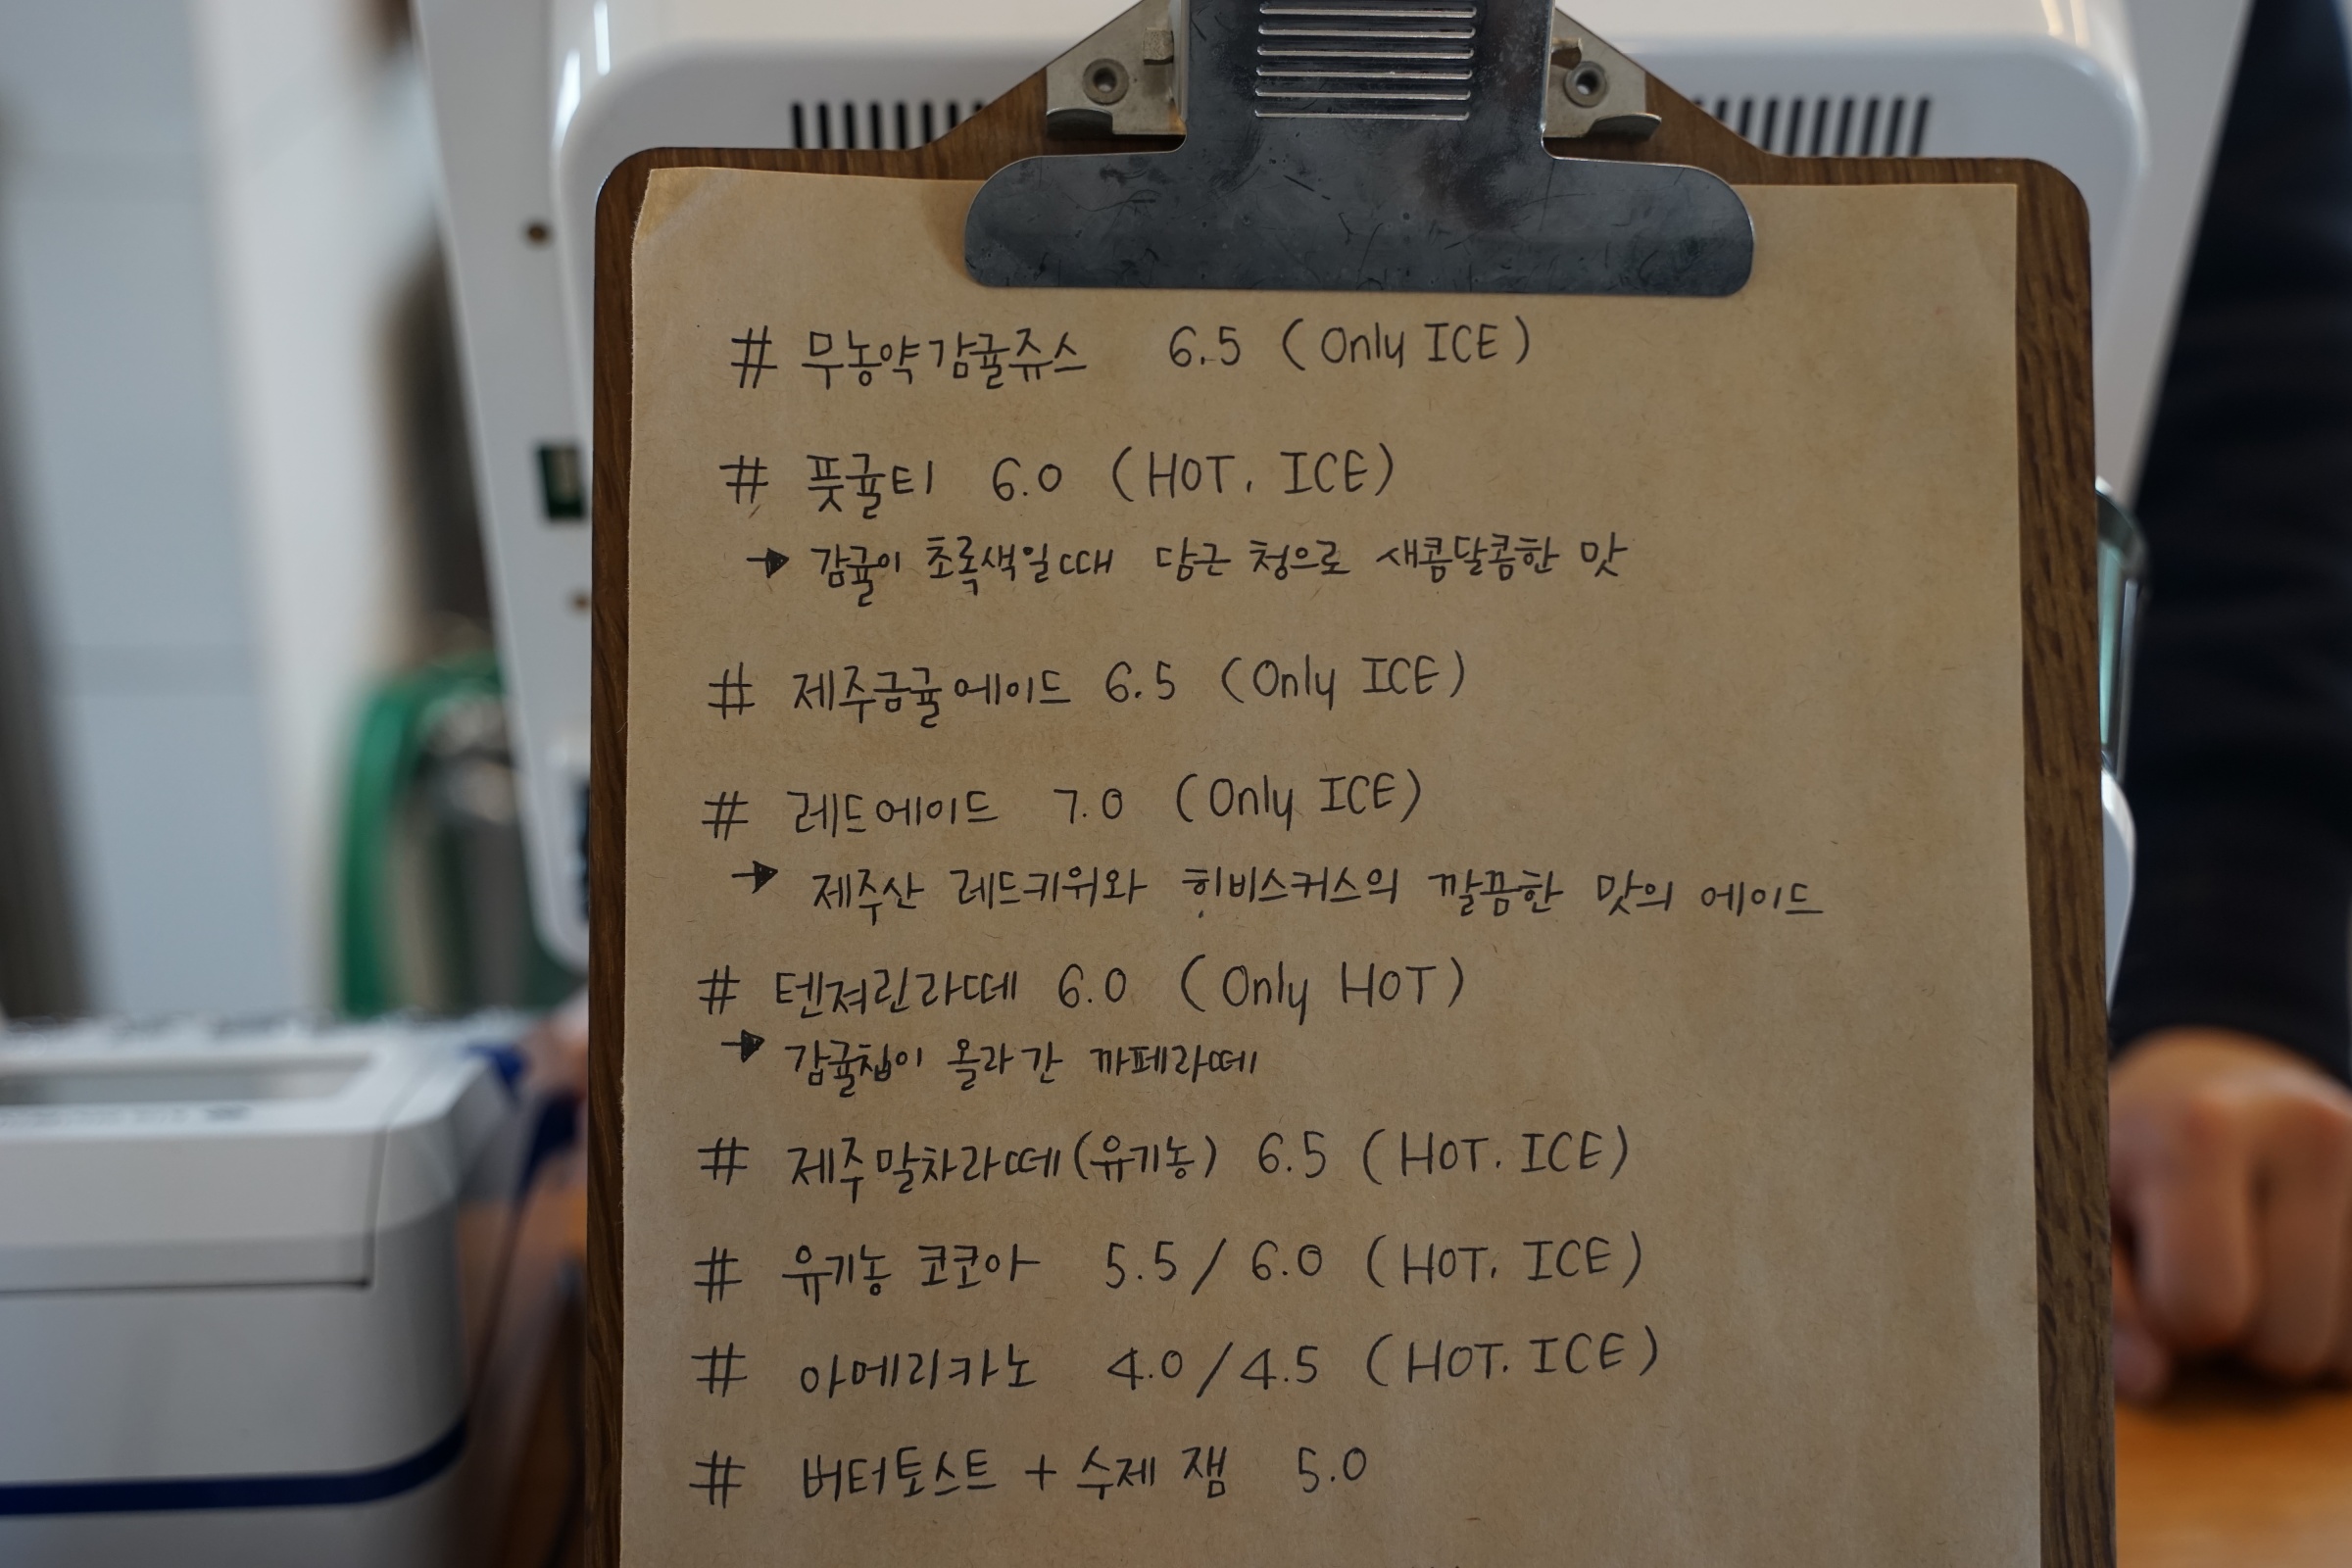 # 무농약감귤쥬스 6.5 (Only ICE)
# 풋귤티 6.0 (HOT. ICE)
→ 감귤이 초록색일때 담근 청으로 새콤달콤한 맛
# 제주금귤에이드 6.5 (Only ICE)
# 레드에이드 7.0 (Only ICE)
→ 제주산 레드키위와 히비스커스의 깔끔한 맛의 에이드
# 텐져린라떼 6.0 (Only HOT)
→ 감귤칩이 올라간 까페라떼
# 제주말차라떼(유기농) 6.5 (HOT. ICE)
# 유기농 코코아 5.5 / 6.0 (HOT. ICE)
# 아메리카노 4.0 / 4.5 (HOT. ICE)
# 버터토스트 + 수제 잼 5.0